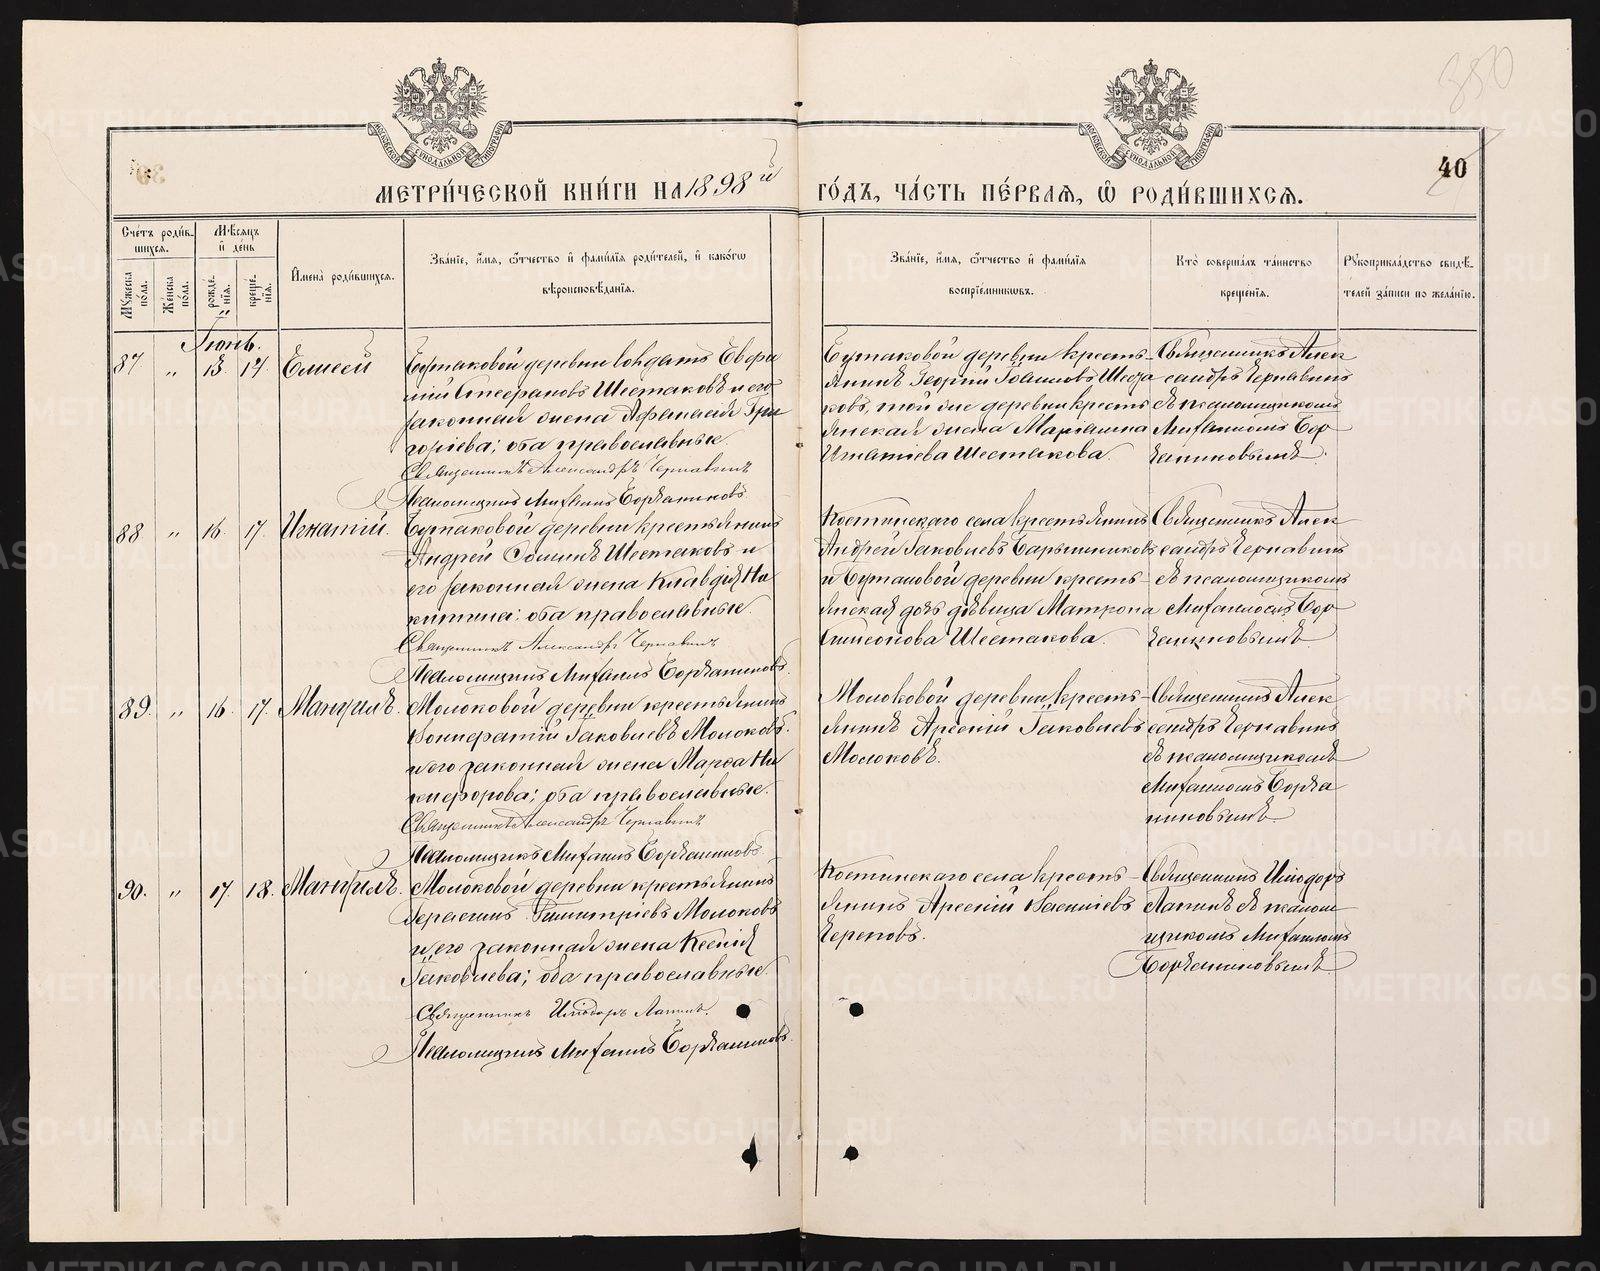 МЕТРИ́ЧЕСКОЙ КНИ́ГИ НА 1898 й ГО́ДЪ, ЧА́СТЬ ПЕ́РВАЯ, Ѡ РОДИ́ВШИХСЯ.
40
Сче́тъ роди́в-
шихся.
Мѣ́сяцъ
и де́нь
Мꙋжеска по́ла.
Же́нска по́ла.
рожде́-нїя.
креще́-нїя.
Имена̀ роди́вшихся.
Зва́нїе, и́мя, ѻ́тчество и фами́лїя роди́телей, и како́гѡ
вѣроисповѣ́данїя.
Зва́нїе, и́мя, ѻ́тчество и фами́лїя
воспрїе́мникѡвъ.
Кто̀ соверша́лъ та́инство
креще́нїя.
Рꙋкоприкла́дство свидѣ́-
телей за́писи по жела́нїю.
Іюнь.
87 „ 13. 14. Елисей
Бутаковой деревни солдатъ Евфи
мій Стефановъ Шестаковъ и его
законная жена Афанасія Гри
горіева; оба православные.
Священникъ Александръ Чернавинъ
Псаломщикъ Михаилъ Борчаниновъ
Бутаковой деревни кресть-
янинъ Георгій Шеста
ковъ, той же деревни кресть
янская жена Марианна
Игнатіева Шестакова.
Священникъ Алек
сандръ Чернавинъ
съ псаломщикомъ
Михаиломъ Бор
чаниновымъ.
88 „ 16. 17. Игнатій.
Бутаковой деревни крестьянинъ
Андрей Шестаковъ и
его законная жена Клавдія Ни
китина; оба православные.
Священникъ Александръ Чернавинъ
Псаломщикъ Михаилъ Борчаниновъ.
Костинскаго села крестьянинъ
Андрей Іаковлевъ Барышниковъ
и Бутаковой деревни кресть-
янская дочь дѣвица Матрона
Симеонова Шестакова.
Священникъ Алек
сандръ Чернавинъ
съ псаломщикомъ
Михаиломъ Бор
чаниновымъ
89. „ 16. 17. Мануилъ.
Молоковой деревни крестьянинъ
Іаковлевъ Молоковъ.
и его законная жена Марѳа Ни
кифорова; оба православные.
Священникъ Александръ Чернавинъ
Псаломщикъ Михаилъ Борчаниновъ
Молоковой деревни кресть-
янинъ Арсеній Іаковлевъ
Молоковъ.
Священникъ Алек
сандръ Чернавинъ
съ псаломщикомъ
Михаиломъ Борча
ниновымъ.
90. „ 17. 18. Мануилъ.
Молоковой деревни крестьянинъ
Герасимъ Димитріевъ Молоковъ
и его законная жена Ксенія
Іаковлева; оба православные.
Священникъ Исидоръ Лапинъ.
Псаломщикъ Михаилъ Борчаниновъ.
Костинскаго села кресть-
янинъ Арсеній Василіевъ
Череповъ.
Священникъ Исидоръ
Лапинъ съ псалом
щикомъ Михаиломъ
Борчаниновымъ
METRIKI.GASO-URAL.RU